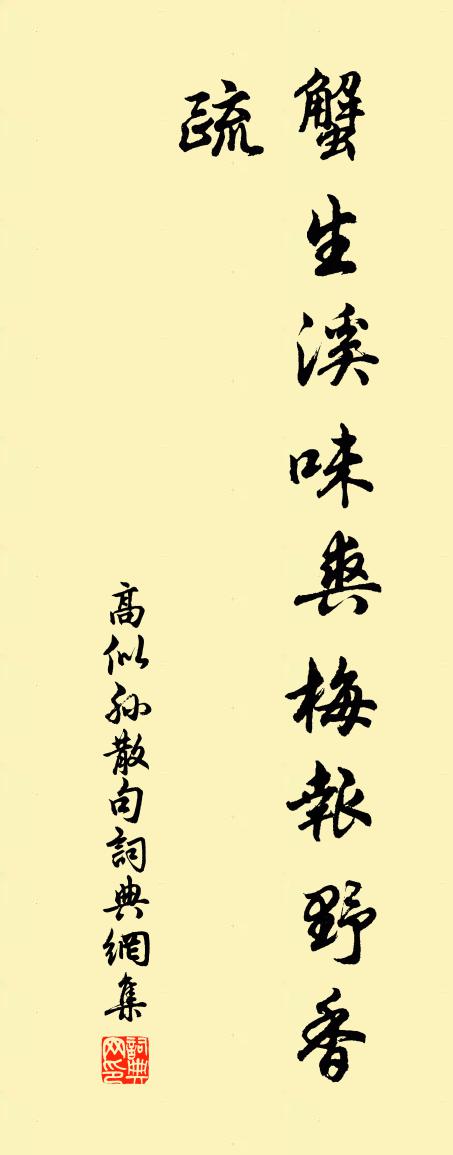 蟹生溪味爽梅報野香
疏
高似孙散句詞典網集
詞典网印